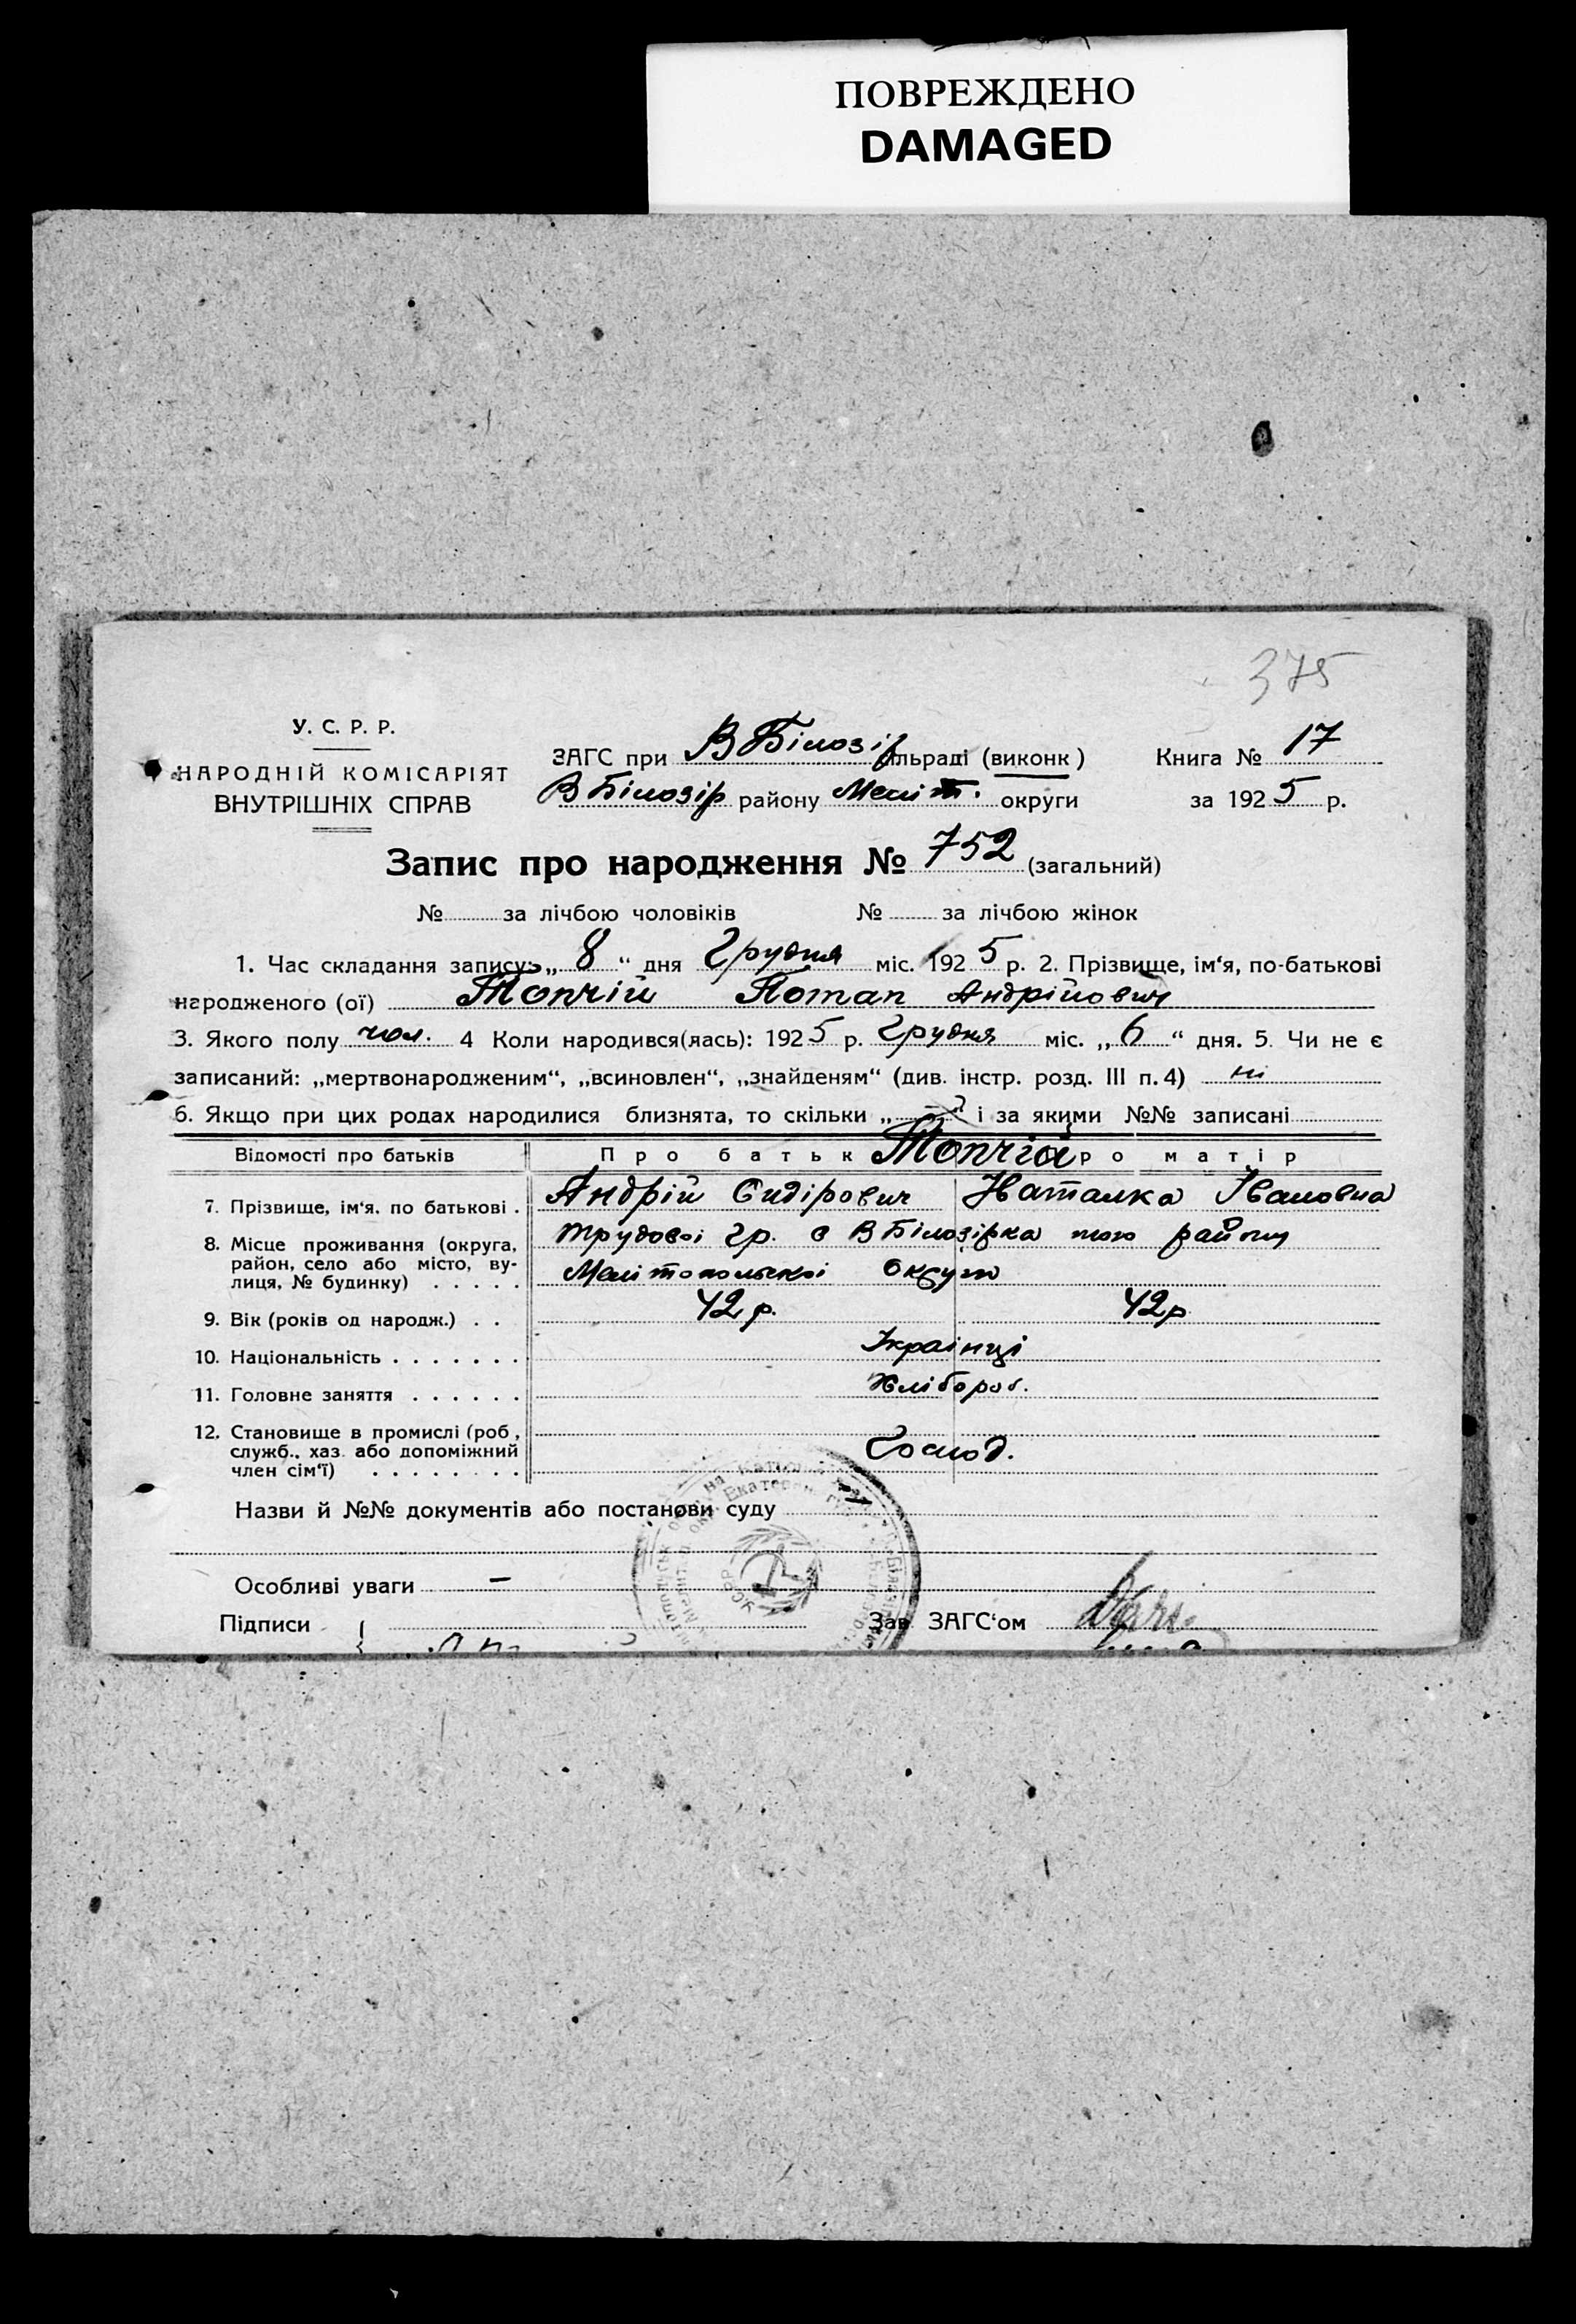 ПОВРЕЖДЕНО
DAMAGED
375
У. С. Р. Р.
НАРОДНІЙ КОМІСАРІЯТ
ВНУТРІШНІХ СПРАВ
ЗАГС при В Білозір сільраді (виконк)
В Білозір району Меліт. округи
Книга № 17
за 1925 р.
Запис про народження № 752 (загальний)
№ за лічбою чоловіків № за лічбою жінок
1. Час складання запису: „ 8 “ дня Грудня міс. 1925 р. 2. Прізвище, ім'я, по-батькові
народженого (ої) Топчій Потап Андрійович
3. Якого полу чол. 4 Коли народився(лась): 1925 р. Грудня міс. „ 6 “ дня. 5. Чи не є
записаний: „мертвонародженим“, „всиновлен“, „знайденям“ (див. інстр. розд. III п. 4) ні
6. Якщо при цих родах народилися близнята, то скільки „ і за якими №№ записані
Відомості про батьків Про батьк Топчій ро матір
7. Прізвище, ім'я, по батькові . Андрій Сидірович Наталка Івановна
8. Місце проживання (округа, район, село або місто, вулиця, № будинку) . . . . . Трудової гр. с В Білозірка того району
Мелітопольскої округи
9. Вік (років од народж.) . . 42 р. 42 р
10. Національність . . . . . . . Українці
11. Головне заняття . . . . . . Хлібороб.
12. Становище в промислі (роб., служб., хаз. або допоміжний член сім'ї) . . . . . . . . Господ.
Назви й №№ документів або постанови суду —
Особливі уваги —
Підписи Зав. ЗАГС'ом
УСРР